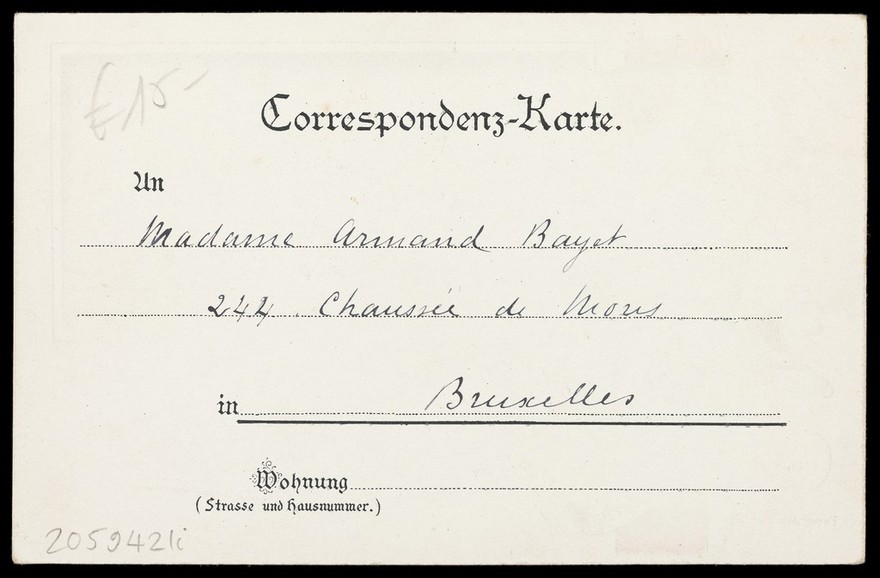 £15-
Correspondenz-Karte.
An
Madame Armand Bayet
244 Chaussée de Mons
in Bruxelles
Wohnung
(Strasse und Hausnummer.)
2059421i